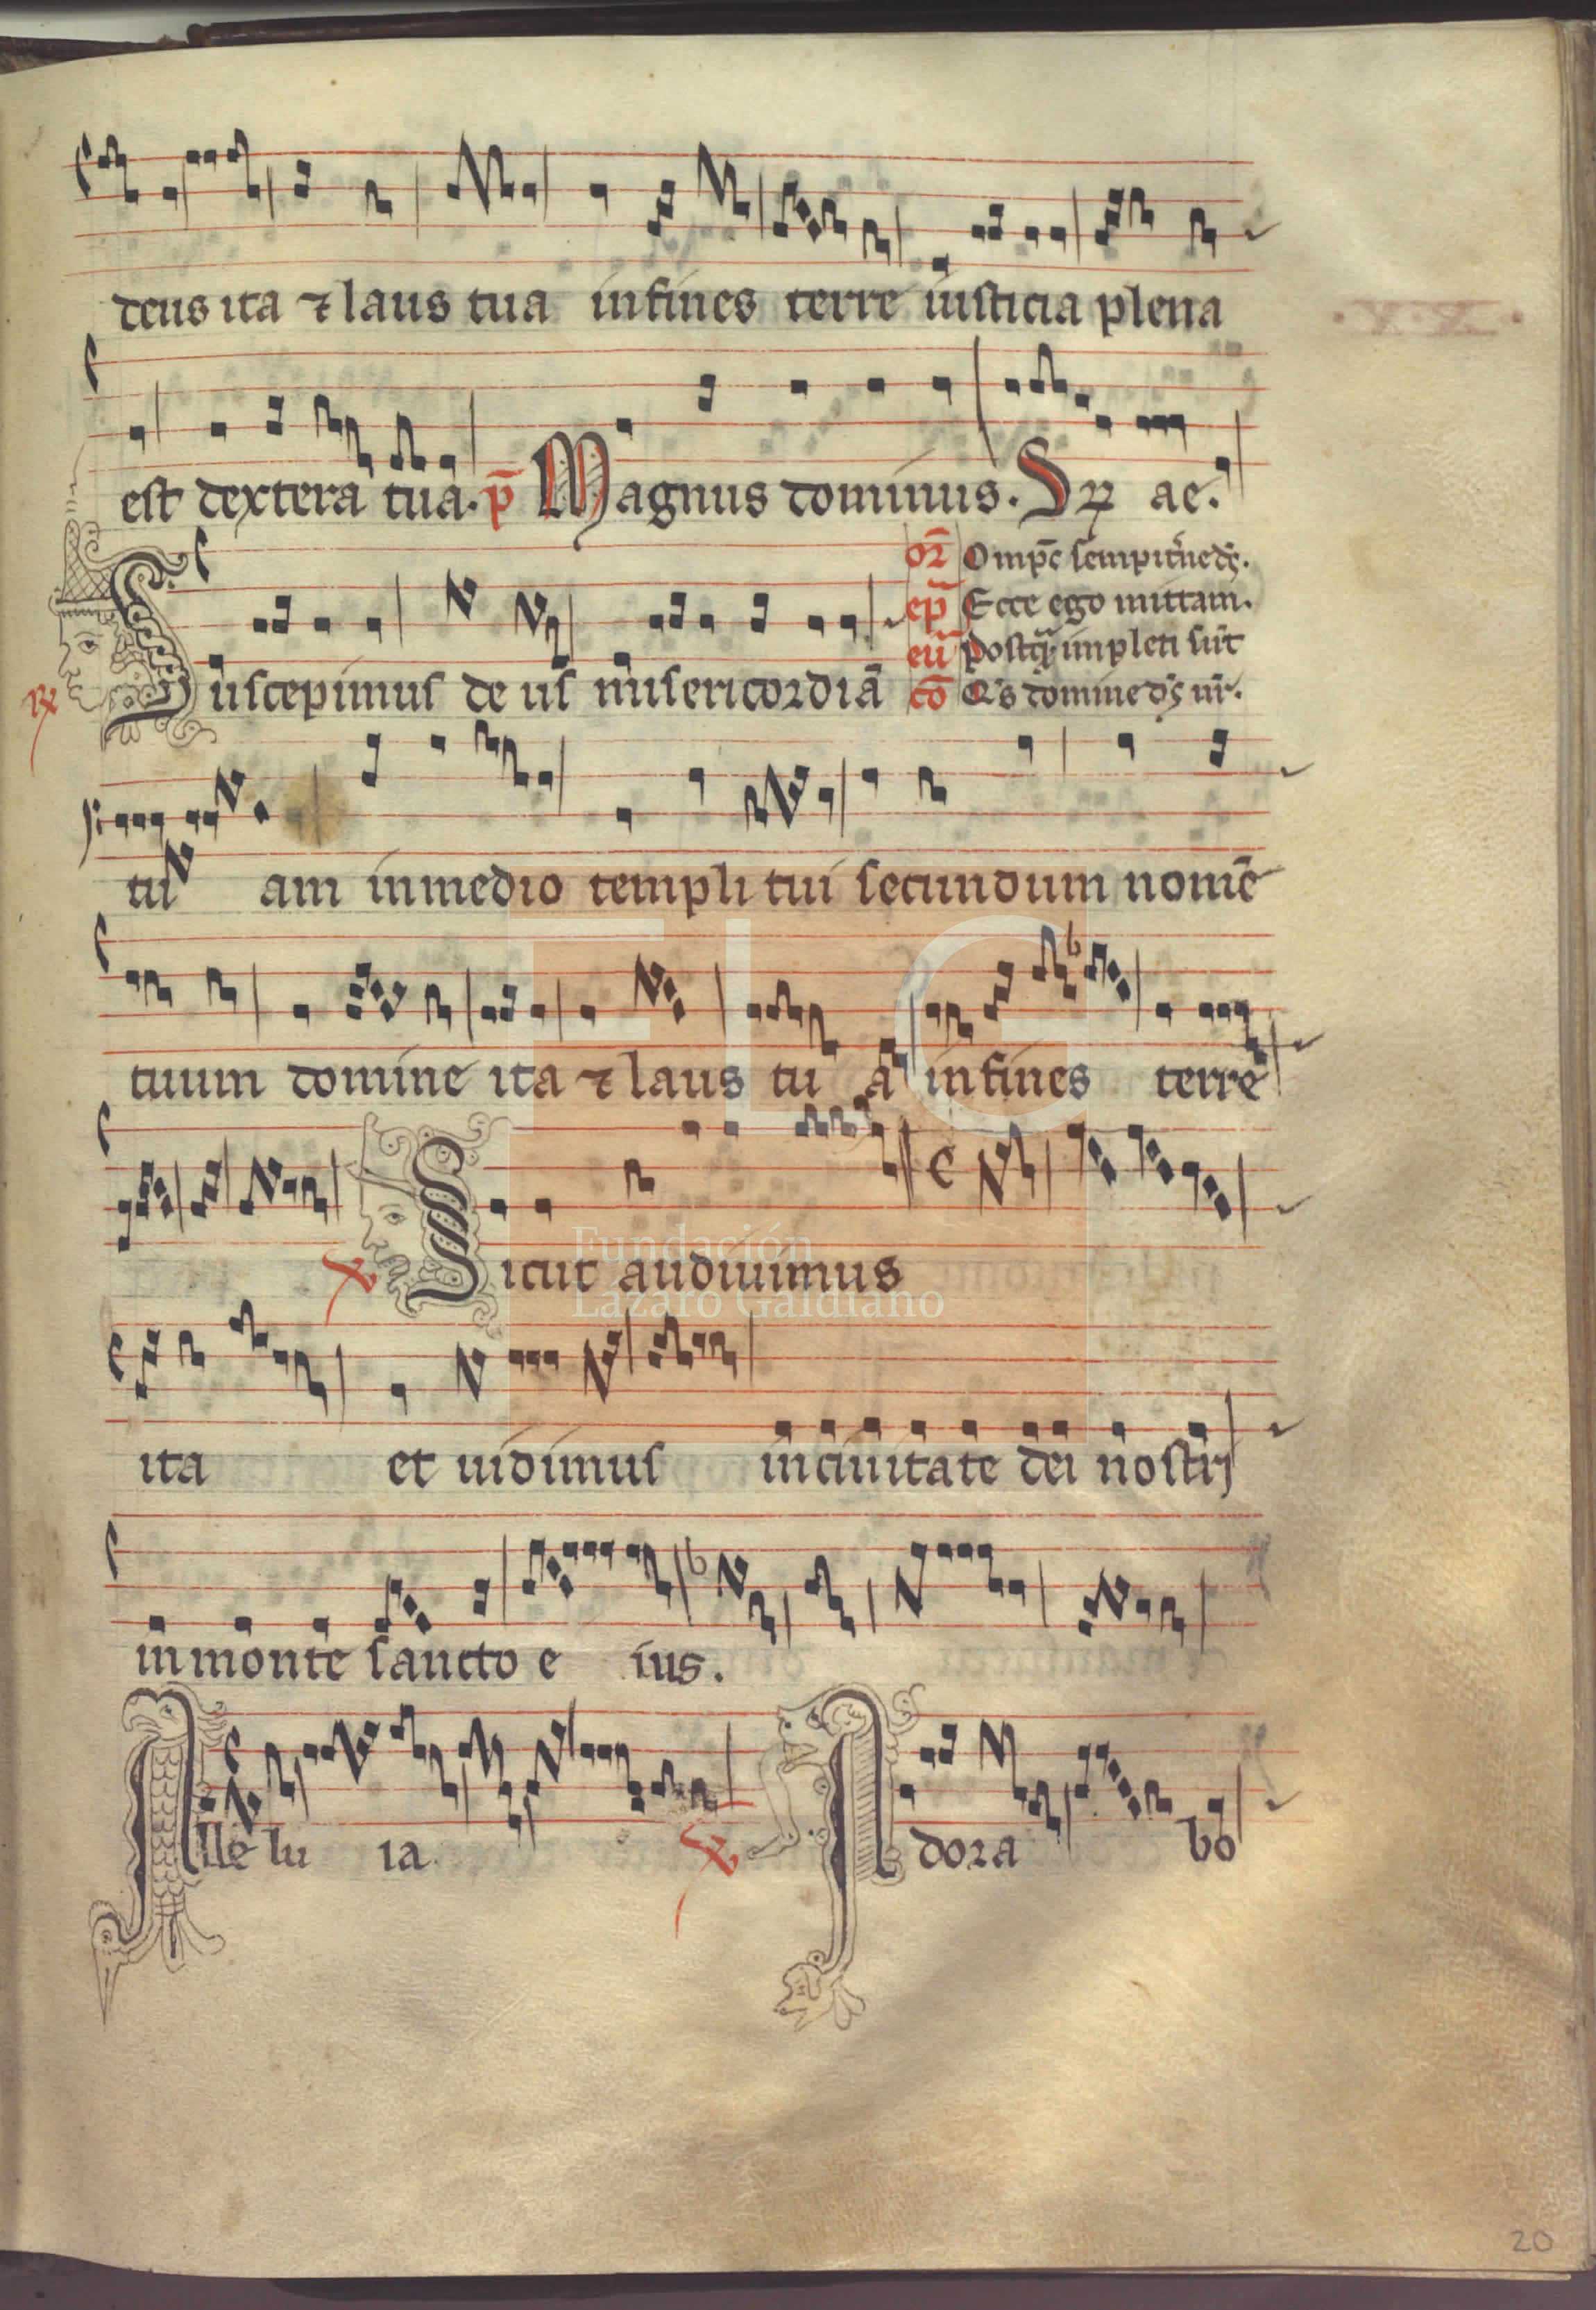 deus ita ⁊ laus tua in fines terre iusticia plena
·X·X·
est dextera tua. p̄ Magnus dominus. Sꝑ ae.
or̄ Omp̄s sempit̾ne dꝰ.
ep̄ Ecce ego mittam.
eū Postq̄ȝ impleti sūt
Suscepimus deus misericordiā cō Q̾s domine dꝰ nr̄.
℟
tu am in medio templi tui secundum nomē
tuum domine ita ⁊ laus tu a in fines terre
℣ Sicut audiuimus
ita et uidimus in ciuitate dei nostrj
in monte sancto e ius.
Alle lu ia ℣ Adora bo
20
FLG
Fundación
Lázaro Galdiano